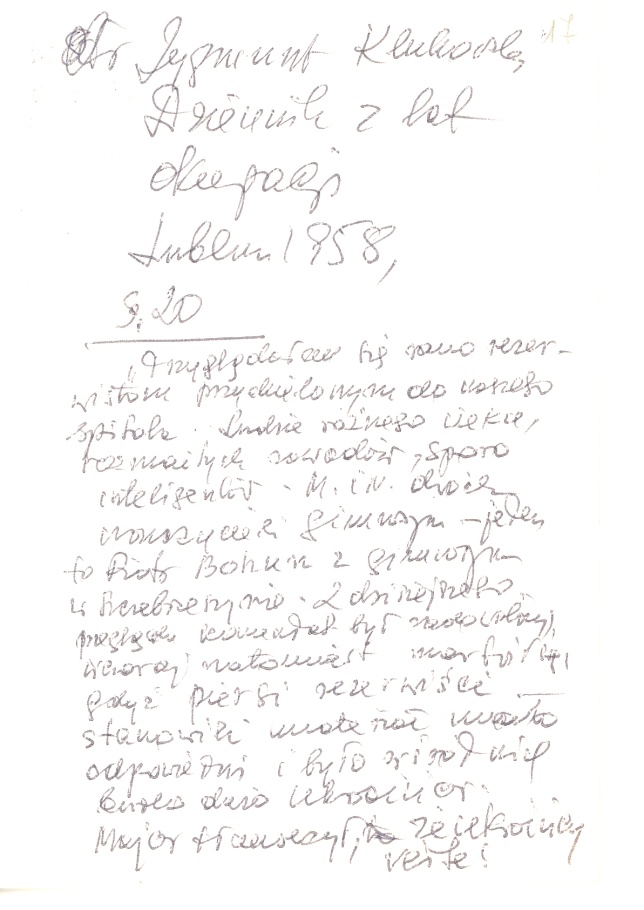 17
Dr Zygmunt Klukowski,
Dziennik z lat
okupacji
Lublin 1958,
s. 20
"Przyglądałem się rano rezer-
wistom przydzielonym do naszego
szpitala. Ludzie różnego wieku,
rozmaitych zawodów, sporo
inteligentów. M. in. dwóch
nauczycieli gimnazjum – jeden
to Piotr Bohun z gimnazjum
w Szczebrzeszynie. Z dzisiejszego
przeglądu komendant był zadowolony,
wczoraj natomiast martwił się,
gdyż pierwsi rezerwiści
stanowili materiał mało
odpowiedni i było wśród nich
bardzo dużo Ukraińców.
Major tłumaczył, że Ukraińcy